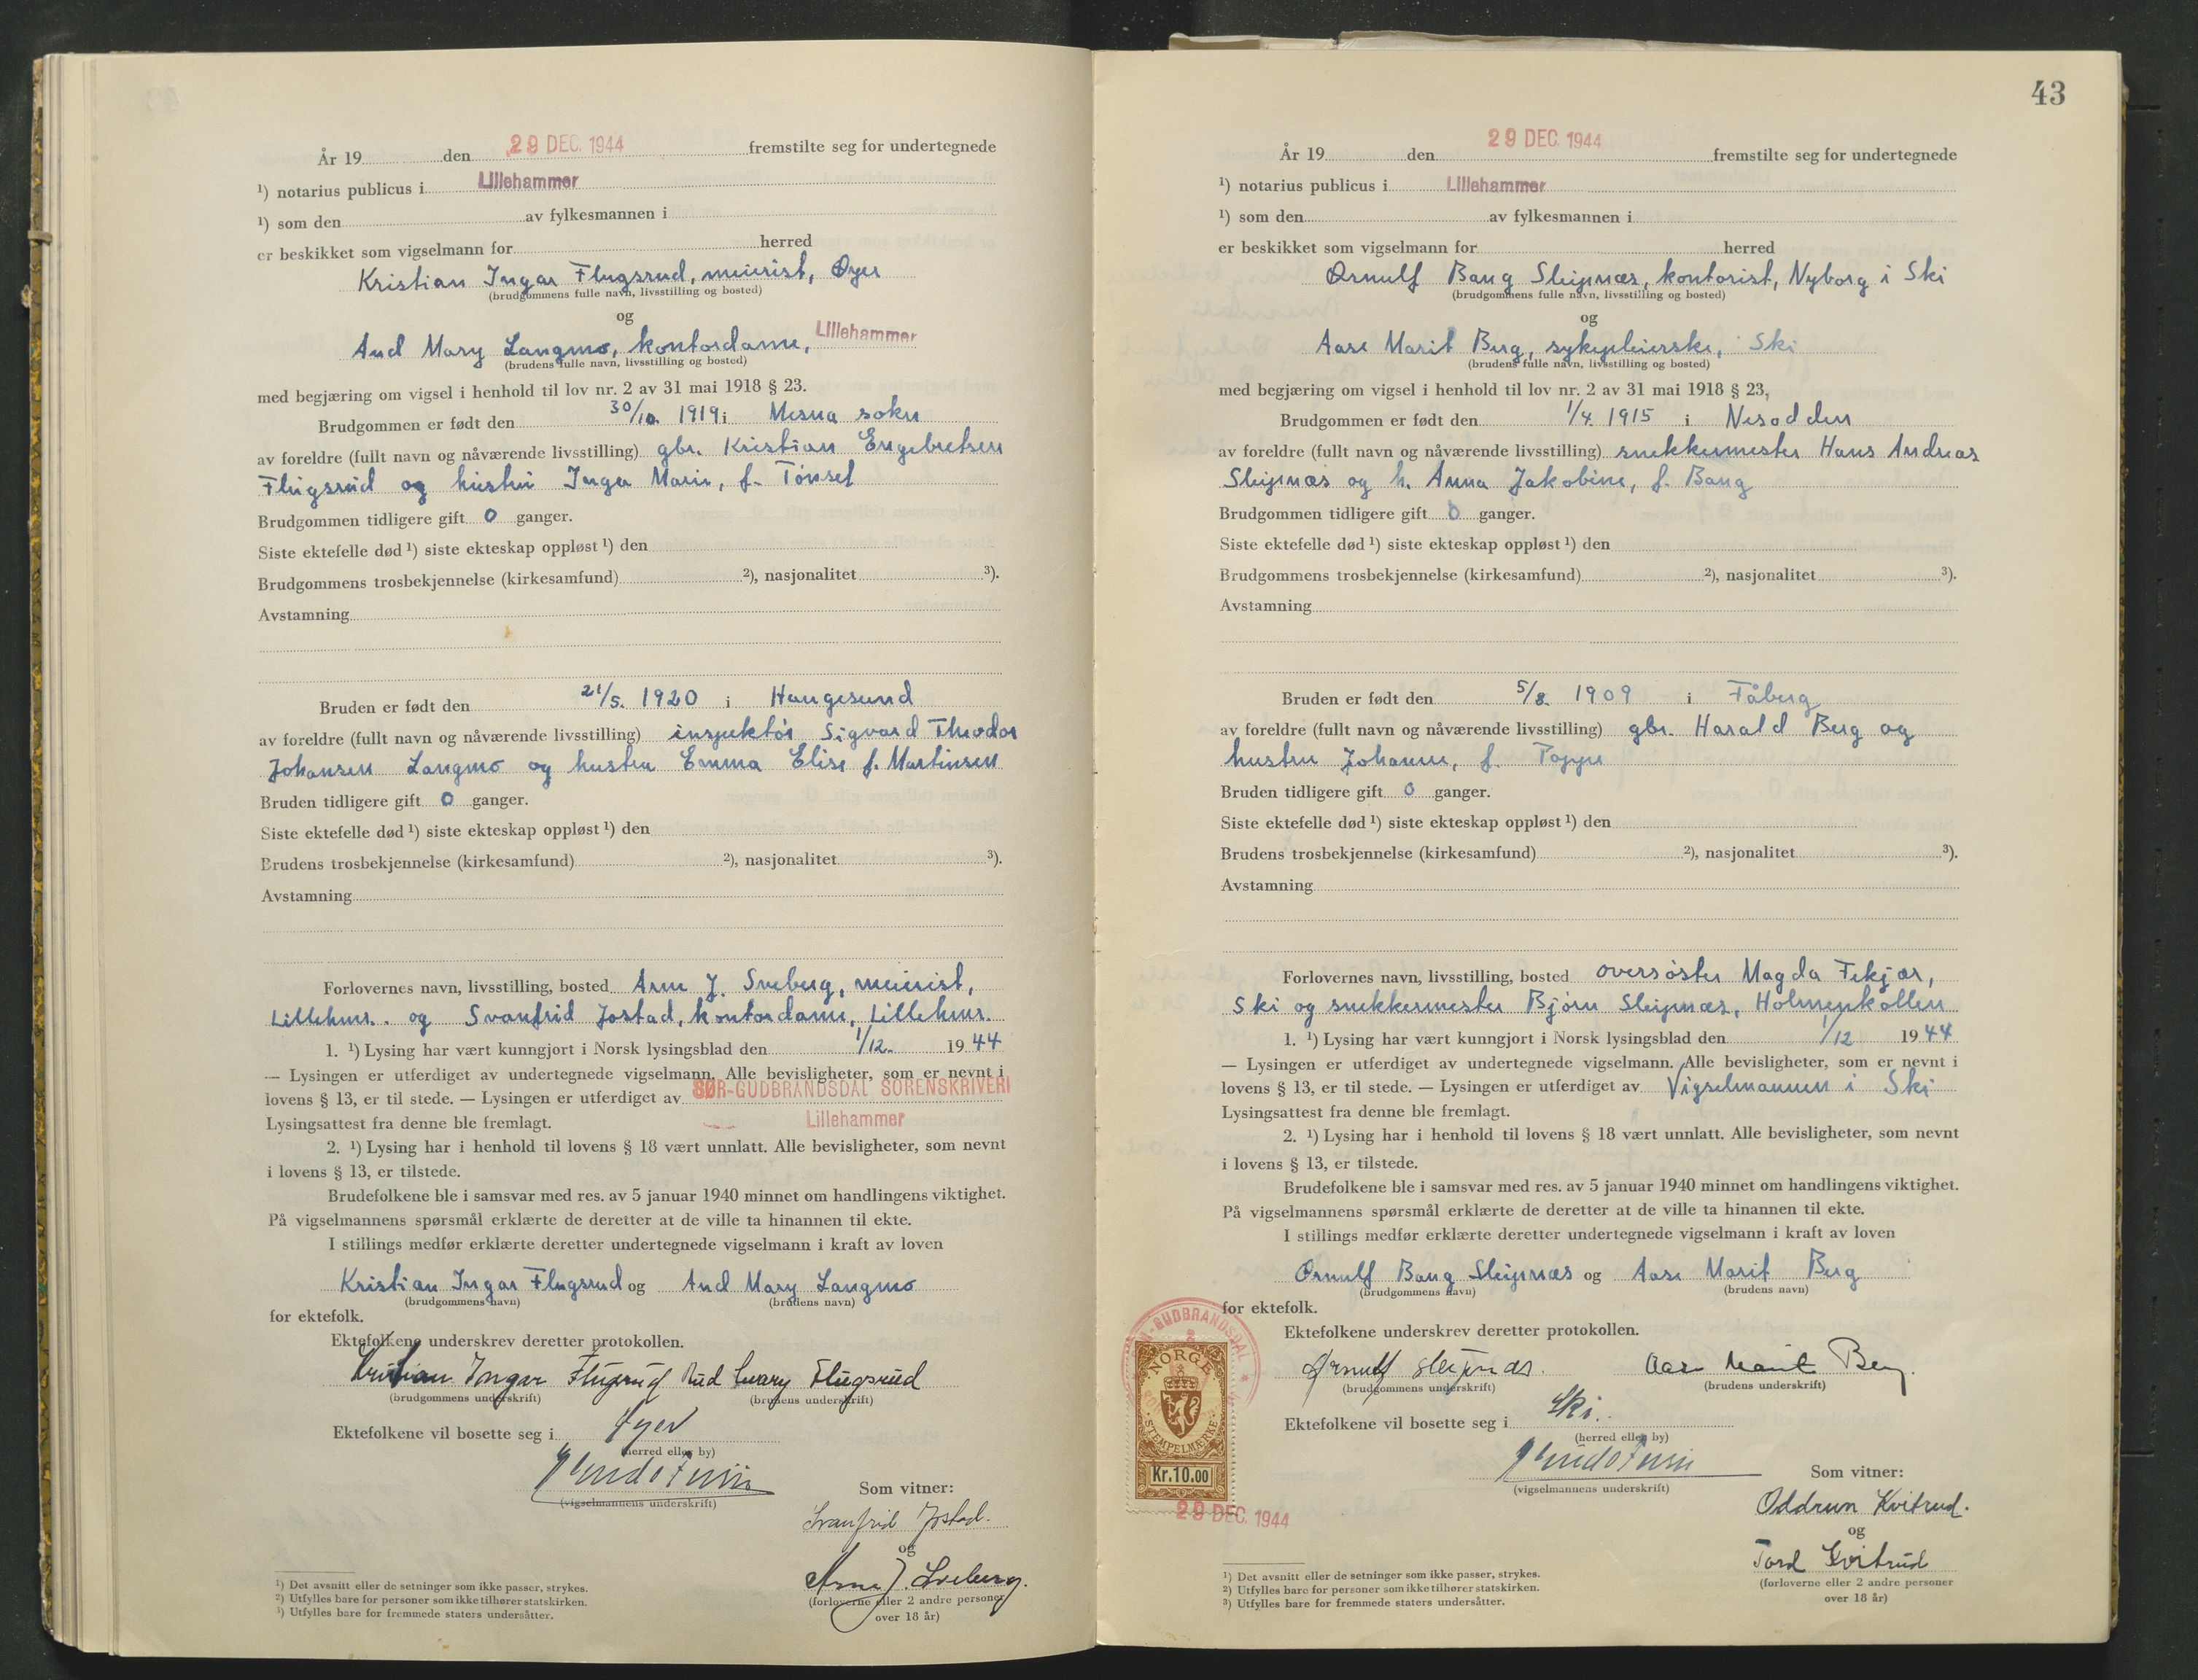 År 19 den 29 DEC. 1944 fremstilte seg for undertegnede
¹) notarius publicus i Lillehammer
¹) som den av fylkesmannen i
er beskikket som vigselmann for herred
Kristian Ingar Flugsrud, meierist, Øyer
(brudgommens fulle navn, livsstilling og bosted)
og
Aud Mary Langmo, kontordame, Lillehammer
(brudens fulle navn, livsstilling og bosted)
med begjæring om vigsel i henhold til lov nr. 2 av 31 mai 1918 § 23.
Brudgommen er født den 30/10. 1919 i Mesna sokn
av foreldre (fullt navn og nåværende livsstilling) gbr. Kristian Engebretsen
Flugsrud og hustru Inga Marie, f. Tónset
Brudgommen tidligere gift 0 ganger.
Siste ektefelle død ¹) siste ekteskap oppløst ¹) den
Brudgommens trosbekjennelse (kirkesamfund) ²), nasjonalitet ³).
Avstamning
Bruden er født den 21/5. 1920 i Haugesund
av foreldre (fullt navn og nåværende livsstilling) inspektór Sigvard Theodor
Johansen Langmo og hustru Emma Elise f. Martinsen
Bruden tidligere gift 0 ganger.
Siste ektefelle død ¹) siste ekteskap oppløst ¹) den
Brudens trosbekjennelse (kirkesamfund) ²), nasjonalitet ³).
Avstamning
Forlovernes navn, livsstilling, bosted Arne J. Sveberg, meierist,
Lillehmr. og Svanfrid Jostad, kontordame, Lillehmr.
1. ¹) Lysing har vært kunngjort i Norsk lysingsblad den 1/12. 1944
— Lysingen er utferdiget av undertegnede vigselmann. Alle bevisligheter, som er nevnt i
lovens § 13, er til stede. — Lysingen er utferdiget av SØR-GUDBRANDSDAL SORENSKRIVERI
Lysingsattest fra denne ble fremlagt. Lillehammer
2. ¹) Lysing har i henhold til lovens § 18 vært unnlatt. Alle bevisligheter, som nevnt
i lovens § 13, er tilstede.
Brudefolkene ble i samsvar med res. av 5 januar 1940 minnet om handlingens viktighet.
På vigselmannens spørsmål erklærte de deretter at de ville ta hinannen til ekte.
I stillings medfør erklærte deretter undertegnede vigselmann i kraft av loven
Kristian Ingar Flugsrud og Aud Mary Langmo
(brudgommens navn) (brudens navn)
for ektefolk.
Ektefolkene underskrev deretter protokollen.
Kristian Ingar Flugsrud Aud Mary Flugsrud
(brudgommens underskrift) (brudens underskrift)
Ektefolkene vil bosette seg i Øyer
(herred eller by)
(vigselmannens underskrift)
Som vitner:
Svanfrid Jostad.
og
Arne J. Sveberg.
(forloverne eller 2 andre personer
over 18 år)
¹) Det avsnitt eller de setninger som ikke passer, strykes.
²) Utfylles bare for personer som ikke tilhører statskirken.
³) Utfylles bare for fremmede staters undersåtter.
43
År 19 den 29 DEC. 1944 fremstilte seg for undertegnede
¹) notarius publicus i Lillehammer
¹) som den av fylkesmannen i
er beskikket som vigselmann for herred
Ørnulf Bang Sleipnæs, kontorist, Nyborg i Ski
(brudgommens fulle navn, livsstilling og bosted)
og
Aase Marit Berg, sykepleierske, Ski
(brudens fulle navn, livsstilling og bosted)
med begjæring om vigsel i henhold til lov nr. 2 av 31 mai 1918 § 23,
Brudgommen er født den 1/4. 1915 i Nesodden
av foreldre (fullt navn og nåværende livsstilling) snekkermester Hans Andreas
Sleipnæs og h. Anna Jakobine, f. Bang
Brudgommen tidligere gift 0 ganger.
Siste ektefelle død ¹) siste ekteskap oppløst ¹) den
Brudgommens trosbekjennelse (kirkesamfund) ²), nasjonalitet ³).
Avstamning
Bruden er født den 5/8. 1909 i Fåberg
av foreldre (fullt navn og nåværende livsstilling) gbr. Harald Berg og
hustru Johanne, f. Poppe
Bruden tidligere gift 0 ganger.
Siste ektefelle død ¹) siste ekteskap oppløst ¹) den
Brudens trosbekjennelse (kirkesamfund) ²), nasjonalitet ³).
Avstamning
Forlovernes navn, livsstilling, bosted oversóster Magda Fekjær,
Ski og snekkermester Bjórn Sleipnæs, Holmenkollen
1. ¹) Lysing har vært kunngjort i Norsk lysingsblad den 1/12 1944
— Lysingen er utferdiget av undertegnede vigselmann. Alle bevisligheter, som er nevnt i
lovens § 13, er til stede. — Lysingen er utferdiget av Vigselmannen i Ski
Lysingsattest fra denne ble fremlagt.
2. ¹) Lysing har i henhold til lovens § 18 vært unnlatt. Alle bevisligheter, som nevnt
i lovens § 13, er tilstede.
Brudefolkene ble i samsvar med res. av 5 januar 1940 minnet om handlingens viktighet.
På vigselmannens spørsmål erklærte de deretter at de ville ta hinannen til ekte.
I stillings medfør erklærte deretter undertegnede vigselmann i kraft av loven
Ørnulf Bang Sleipnæs og Aase Marit Berg
(brudgommens navn) (brudens navn)
for ektefolk.
Ektefolkene underskrev deretter protokollen.
Ørnulf Sleipnæs. Aase Marit Berg.
(brudgommens underskrift) (brudens underskrift)
Ektefolkene vil bosette seg i Ski.
(herred eller by)
(vigselmannens underskrift)
Som vitner:
Oddrun Kvitrud.
og
Tord Kvitrud
(forloverne eller 2 andre personer
over 18 år)
GUDBRANDSDAL
NORGE
STEMPELMERKE
Kr.10.00
29 DEC. 1944
¹) Det avsnitt eller de setninger som ikke passer, strykes.
²) Utfylles bare for personer som ikke tilhører statskirken.
³) Utfylles bare for fremmede staters undersåtter.